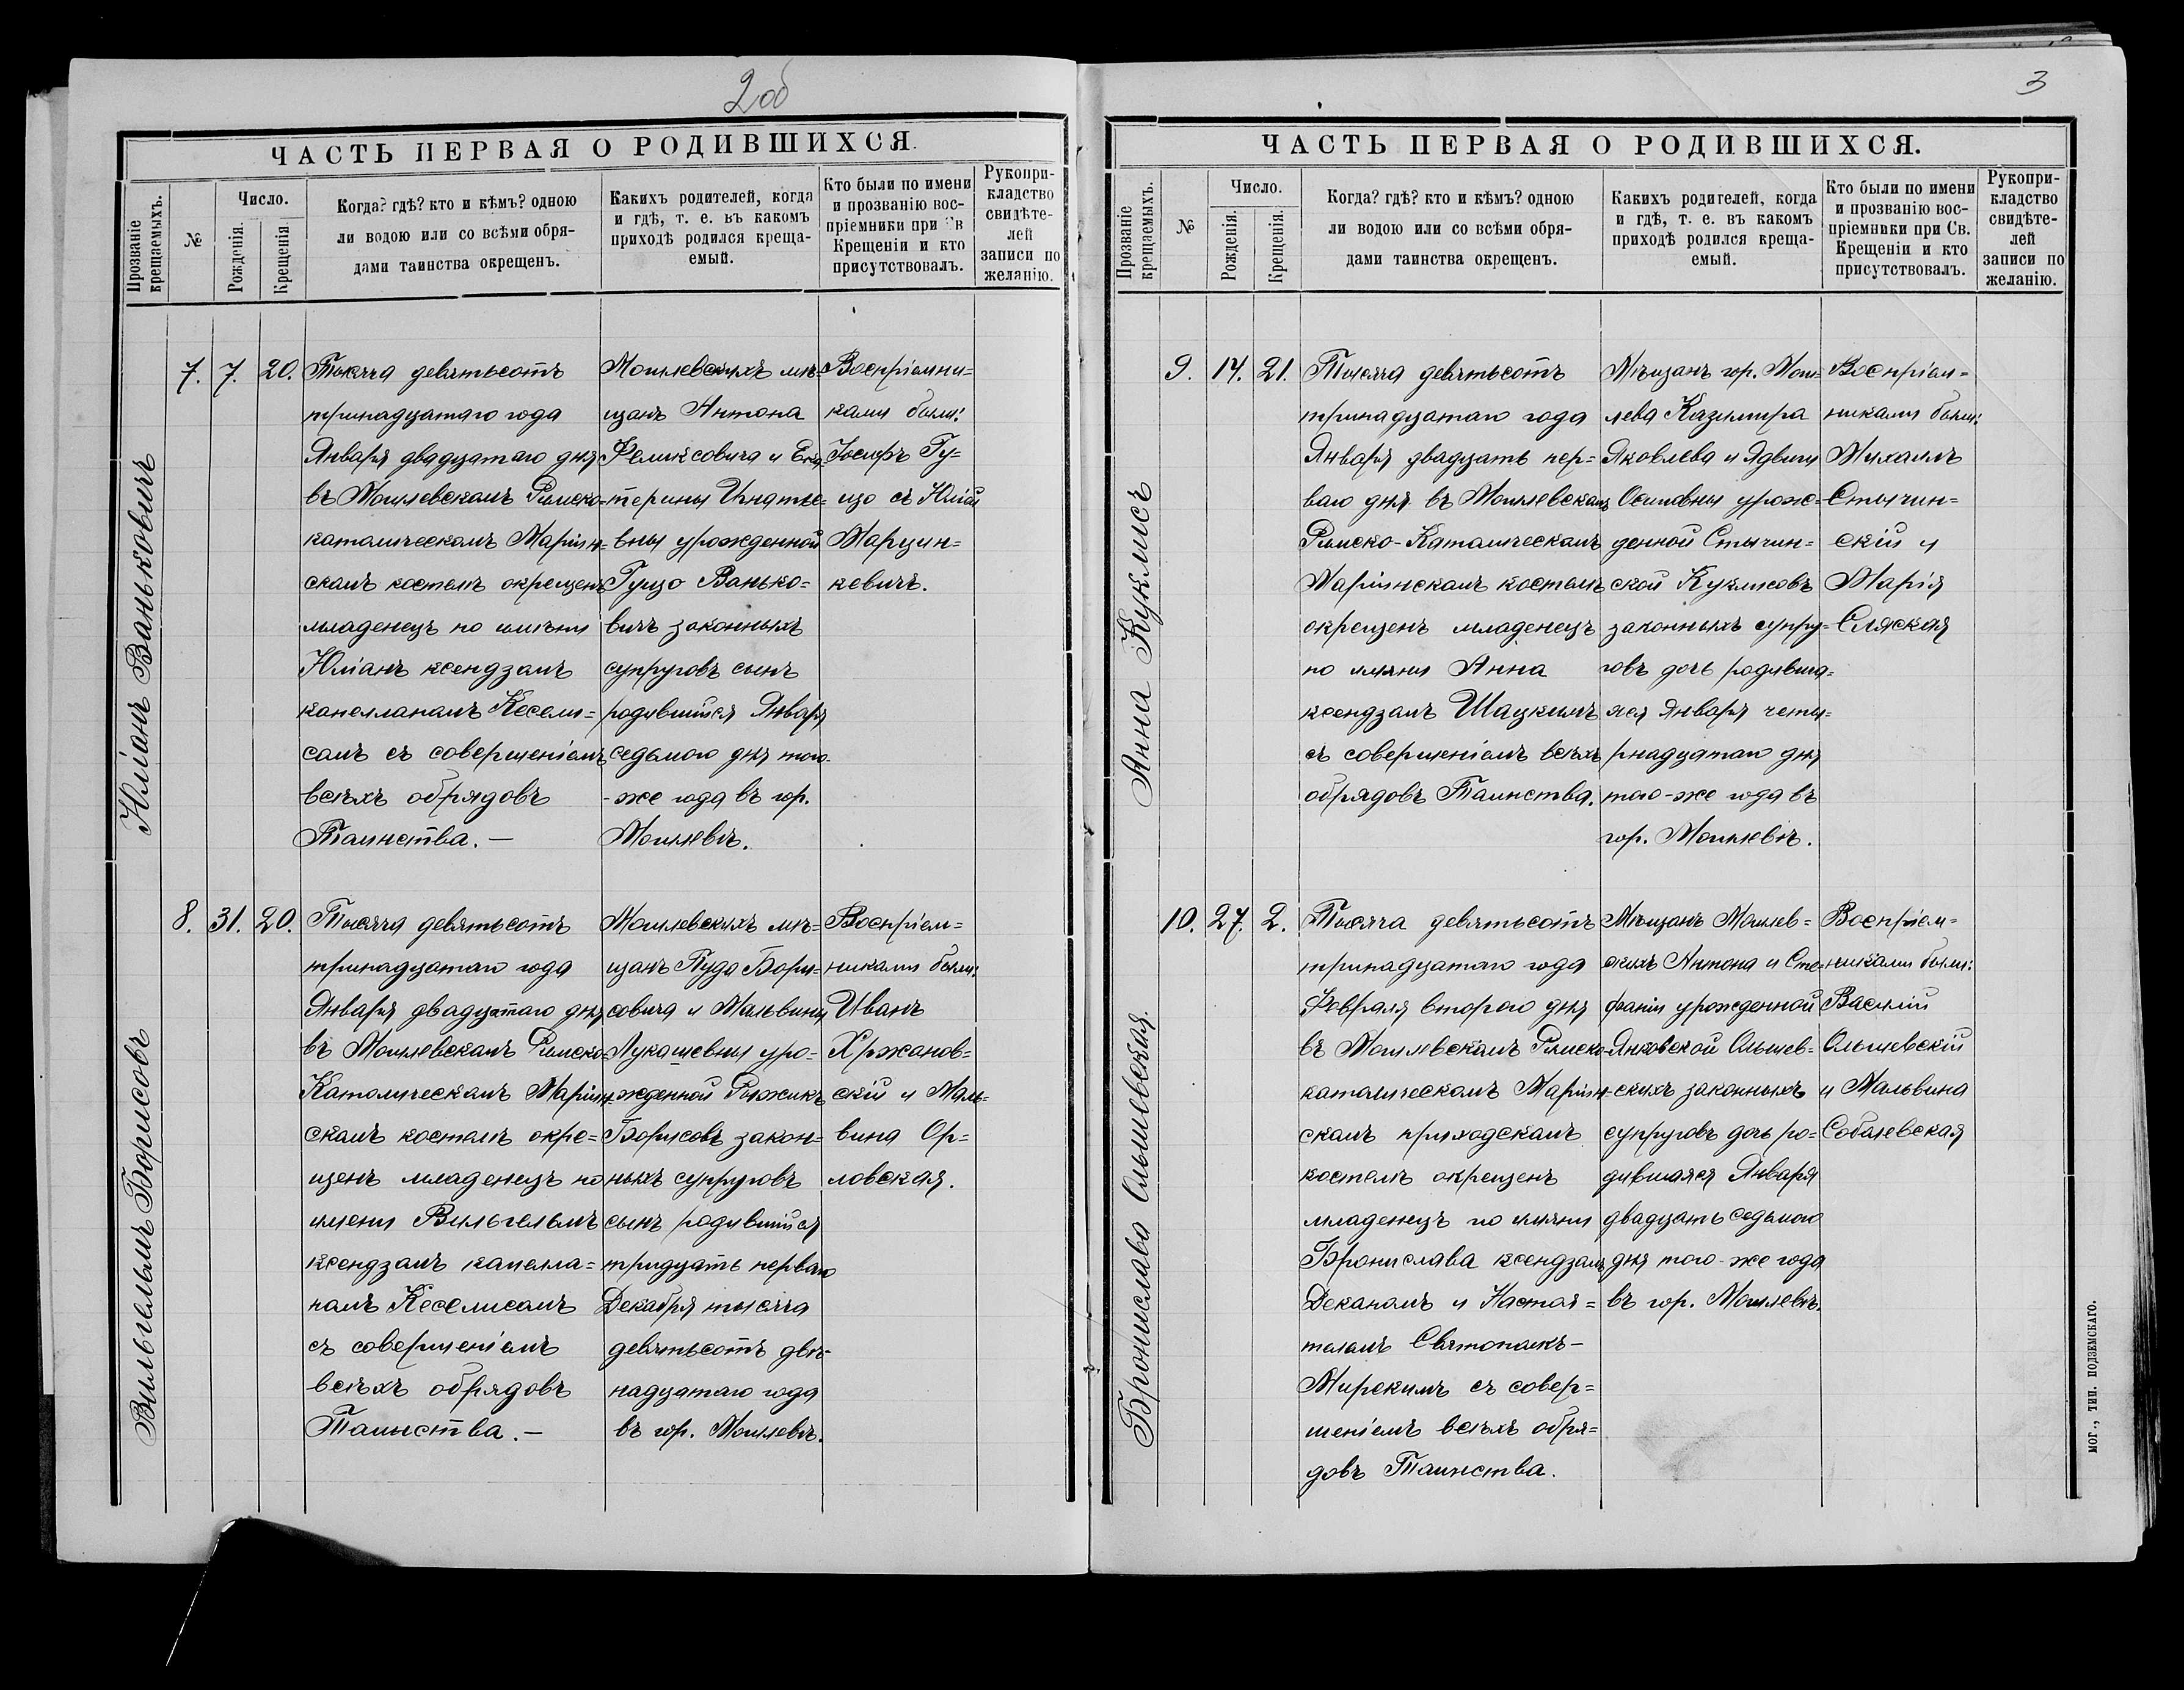 2об
ЧАСТЬ ПЕРВАЯ О РОДИВШИХСЯ.
Прозваніе крещаемыхъ.
№
Число.
Рожденія.
Крещенія.
Когда? гдѣ? кто и кѣмъ? одною
ли водою или со всѣми обря-
дами таинства окрещенъ.
Какихъ родителей, когда
и гдѣ, т. е. въ какомъ
приходѣ родился креща-
емый.
Кто были по имени
и прозванію вос-
пріемники при Св
Крещеніи и кто
присутствовалъ.
Рукопри-
кладство
свидѣте-
лей
записи по
желанію.
Юліанъ Ваньковичъ
7. 7. 20.
Тысяча девятьсотъ
тринадцатаго года
Января двадцатаго дня
въ Могилевскомъ Римско-
католическомъ Маріин-
скомъ костелѣ окрещенъ
младенецъ по имени
Юліанъ ксендзомъ
капелланомъ Кесели-
сомъ съ совершеніемъ
всѣхъ обрядовъ
Таинства. —
Могилевскихъ мѣ-
щанъ Антона
Феликсовича и Ека-
терины Игнатье-
вны урожденной
ГуцоВанько-
вичъ законныхъ
супруговъ сынъ
родившійся Января
седьмого дня того-
-же года въ гор.
Могилевѣ.
Воспріемни-
ками были:
Іосифъ Гу-
цо съ Юліей
Марцин-
кевичъ.
Вильгельмъ Борисовъ
8. 31. 20.
Тысяча девятьсотъ
тринадцатаго года
Января двадцатаго дня
въ Могилевскомъ Римско-
Католическомъ Маріин-
скомъ костелѣ окре-
щенъ младенецъ по
имени Вильгельмъ
ксендзомъ капелла-
номъ Кеселисомъ
съ совершеніемъ
всѣхъ обрядовъ
Таинства. —
Могилевскихъ мѣ-
щанъ Пуда Бори-
совича и Мальвины
Лукашевны уро-
жденной Рыжикъ
Борисовъ закон-
ныхъ супруговъ
сынъ родившійся
тридцать перваго
Декабря тысяча
девятьсотъ двѣ-
надцатаго года
въ гор. Могилевѣ.
Воспріем-
никами были:
Иванъ
Хржанов-
скій и Маль-
вина Ор-
ловская.
3
ЧАСТЬ ПЕРВАЯ О РОДИВШИХСЯ.
Прозваніе крещаемыхъ.
№
Число.
Рожденія.
Крещенія.
Когда? гдѣ? кто и кѣмъ? одною
ли водою или со всѣми обря-
дами таинства окрещенъ.
Какихъ родителей, когда
и гдѣ, т. е. въ какомъ
приходѣ родился креща-
емый.
Кто были по имени
и прозванію вос-
пріемники при Св.
Крещеніи и кто
присутствовалъ.
Рукопри-
кладство
свидѣте-
лей
записи по
желанію.
Анна Куклисъ
9. 14. 21.
Тысяча девятьсотъ
тринадцатаго года
Января двадцать пер-
ваго дня въ Могилевскомъ
Римско-Католическомъ
Маріинскомъ костелѣ
окрещенъ младенецъ
по имени Анна
ксендзомъ Шацкимъ
съ совершеніемъ всѣхъ
обрядовъ Таинства.
Мѣщанъ гор. Моги-
лева Казимира
Яковлева и Ядвиги
Осиповны урож-
денной Стычин-
ской Куклисовъ
законныхъ супру-
говъ дочь родивша-
яся Января четы-
рнадцатаго дня
того-же года въ
гор. Могилевѣ.
Воспріем-
никами были:
Михаилъ
Стычин-
скій и
Марія
Сляская
Бронислава Ольшевская.
10. 27. 2.
Тысяча девятьсотъ
тринадцатаго года
Февраля второго дня
въ Могилевскомъ Римско-
католическомъ Маріин-
скомъ приходскомъ
костелѣ окрещенъ
младенецъ по имени
Бронислава ксендзомъ
Деканомъ и Настоя-
телемъ Святополкъ-
Мирскимъ съ совер-
шеніемъ всѣхъ обря-
довъ Таинства.
Мѣщанъ Могилев-
скихъ Антона и Сте-
фаніи урожденной
Янковской Ольшев-
скихъ законныхъ
супруговъ дочь ро-
дившаяся Января
двадцать седьмого
дня того-же года
въ гор. Могилевѣ.
Воспріем-
никами были:
Василій
Ольшевскій
и Мальвина
Соболевская
МОГ., ТИП. ПОДЗЕМСКАГО.